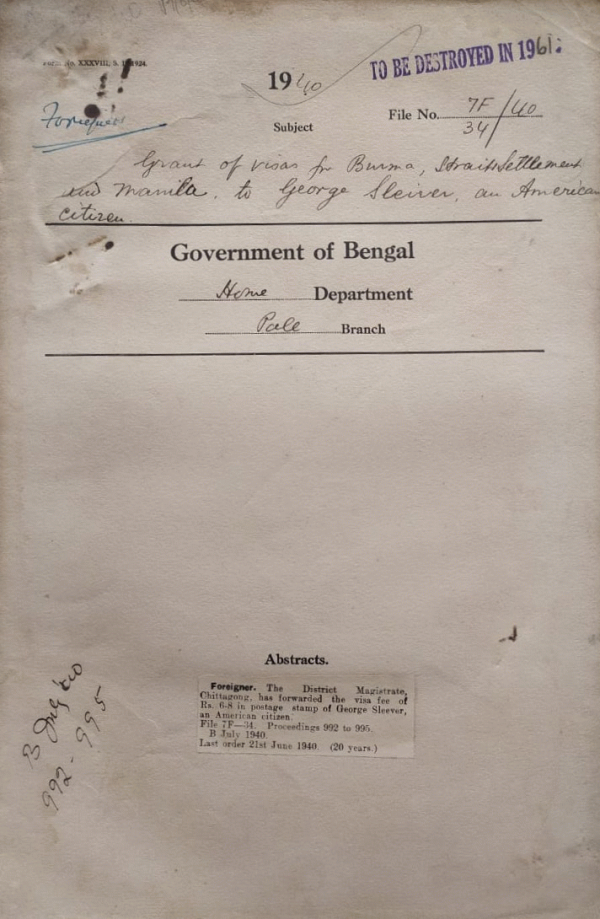 Form No. XXXVIII, 1924.
1940
TO BE DESTROYED IN 1961.
Foreigners
File No. 7F/34/40
Subject
Grant of visas for Burma, Straits Settlement
and Manila. to George Sleiver, an American
citizen.
Government of Bengal
Home Department
Pole Branch
Abstracts.
Foreigner. The District Magistrate,
Chittagong, has forwarded the visa fee of
Rs. 6-8 in postage stamp of George Sleever,
an American citizen.
File 7F—34. Proceedings 992 to 995.
B July 1940.
Last order 21st June 1940. (20 years.)
B July
992-995